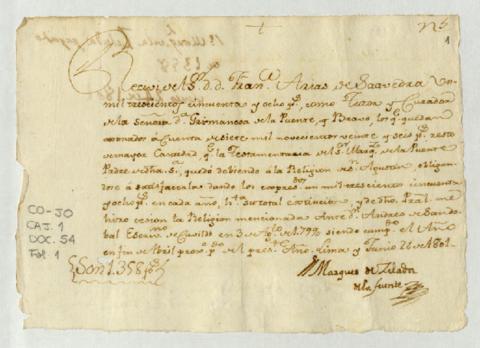 1
Recivi del Sr. D. D. Franco. Arias de Saavedra Un
mil trescientos cinquenta y ocho ps. como Tutor y Curador
de la Señora Da. Grimanesa de la Puente, y Bravo, los qe. quedan
avonados à Cuenta de siete mil novecientos veinte y seis ps. resto
de mayor Cantidad, qe. la Testamentaria del Sr. Marqs. de la Puente
Padre de dha. Sa. quedó debiendo à la Religion de Sn. Agustin, obligan-
dose á satisfacerla dando los expresdos. un mil trescientos cinquenta
y ocho ps. en cada año, hta. su total extincion, y de dho. Pral. me
hizo cesion la Religion mencionada Ante Dn. Andres de Sando-
bal Escrivno. de Cavildo en 3 de Agto. de 1792 siendo cumpdo. el Año
en fin de Abril proxo. pdo. de el preste. Año. Lima y Junio 26 de 1801.
Son 1.358 ps.
El Marques de Zelada
de la Fuente
CO-JO
CAJ. 1
DOC. 54
Fol. 1